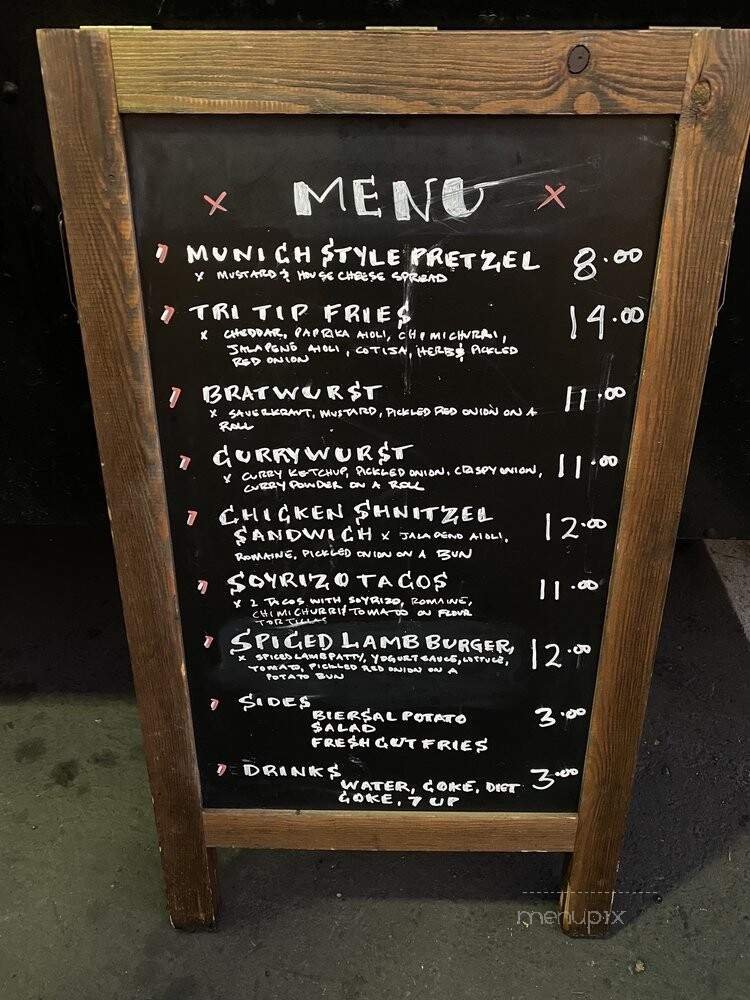 x MENU x
MUNICH STYLE PRETZEL 8.00
x MUSTARD & HOUSE CHEESE SPREAD
TRI TIP FRIES 14.00
x CHEDDAR, PAPRIKA AIOLI, CHIMICHURRI,
JALAPEÑO AIOLI, COTIJA, HERBS PICKLED
RED ONION
BRATWURST 11.00
x SAUERKRAUT, MUSTARD, PICKLED RED ONION ON A
ROLL
CURRYWURST 11.00
x CURRY KETCHUP, PICKLED ONION, CRISPY ONION,
CURRY POWDER ON A ROLL
CHICKEN SHNITZEL
SANDWICH x JALAPENO AIOLI, 12.00
ROMAINE, PICKLED ONION ON A BUN
SOYRIZO TACOS 11.00
x 2 TACOS WITH SOYRIZO, ROMAINE,
CHIMICHURRI & TOMATO ON FLOUR
TORTILLAS
SPICED LAMB BURGER, 12.00
x SPICED LAMB PATTY, YOGURT SAUCE, LETTUCE,
TOMATO, PICKLED RED ONION ON A
POTATO BUN
SIDES 3.00
BIERSAL POTATO
SALAD
FRESH CUT FRIES
DRINKS 3.00
WATER, COKE, DIET
COKE, 7 UP
menupix